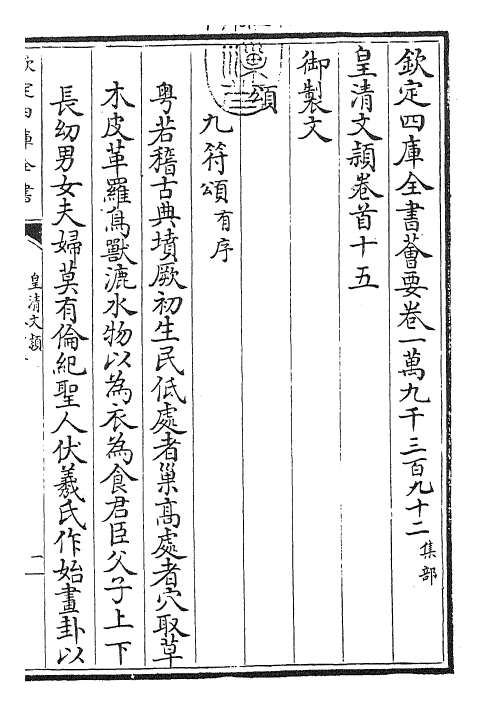 欽定四庫全書薈要卷一萬九千三百九十二 集部
皇清文頴卷首十五
御製文
頌
九符頌有序
粤若稽古典墳厥初生民低處者巢髙處者穴取草
木皮革羅鳥獸漉水物以為衣為食君臣父子上下
長幼男女夫婦莫有倫紀聖人伏羲氏作始畫卦以
欽定四庫全書
皇清文頴
一